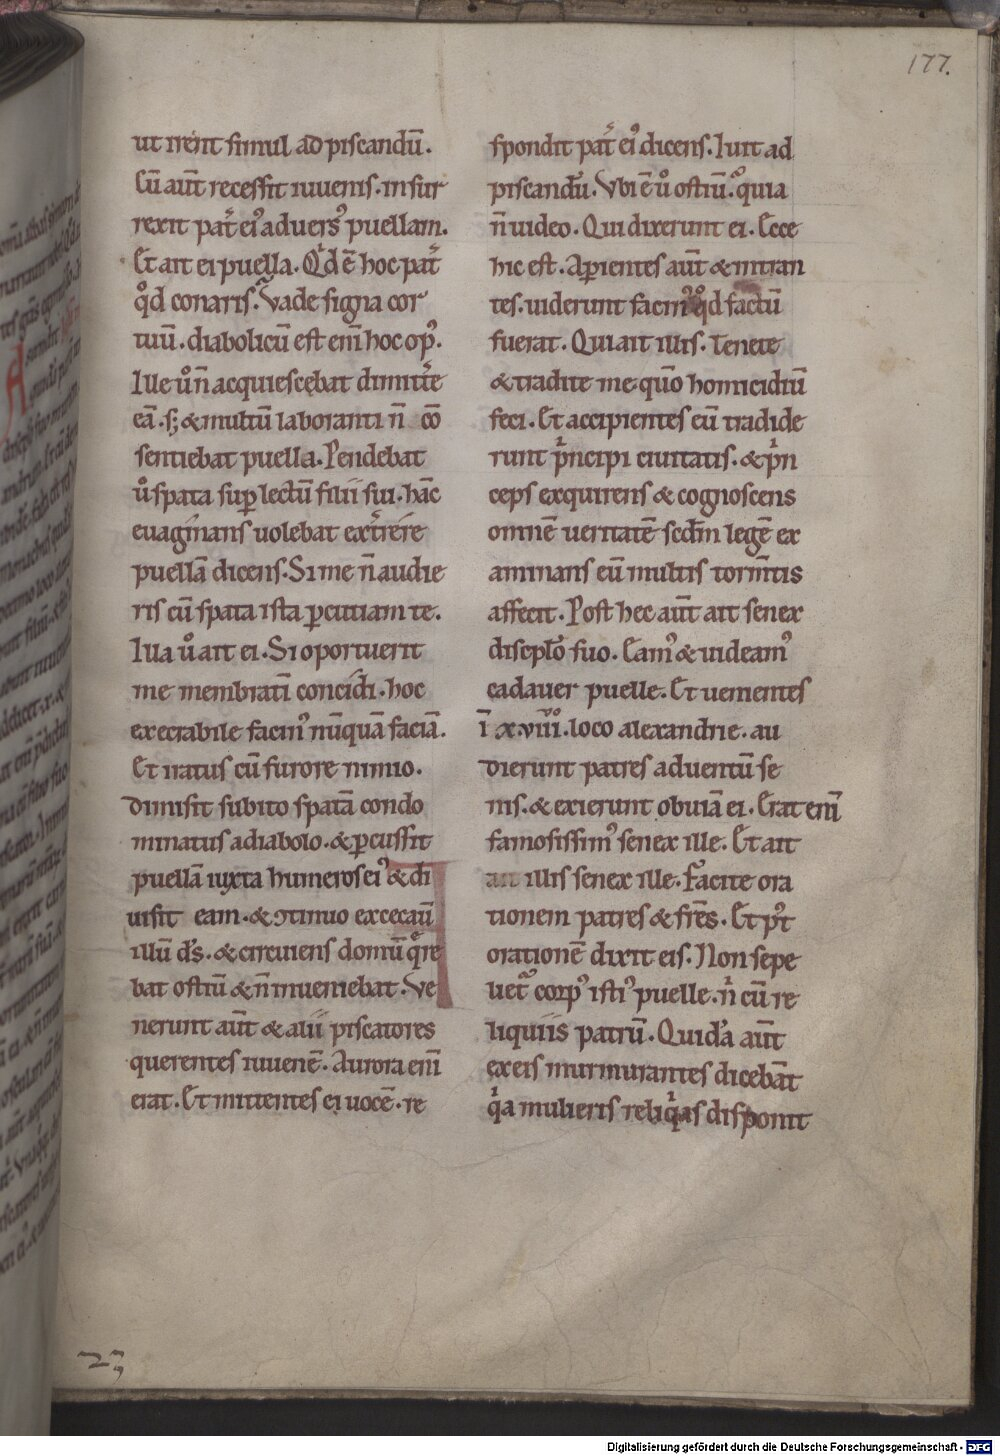 177.
ut irent simul ad piscandū.
Cū aūt recessit iuuenis. insur
rexit pat̄ ei᷒ aduers᷒ puellam.
Et ait ei puella. Qͥd ē hoc pat̄
qͦd conaris. Vade signa cor
tuū. diabolicū est em̄ hoc op᷒.
Ille uͦ n̄ acquiescebat dimitt̄e
eā. sꝫ & multū laboranti n̄ cō
sentiebat puella. Pendebat
uͦ spata suꝑ lectū filii sui. hāc
euaginans uolebat ext̄rere
puellā dicens. Si me n̄ audie
ris cū spata ista ꝑcutiam te.
Illa uͦ ait ei. Si oportuerit
me membratī concidi. hoc
execrabile facin᷒ nūquā faciā.
Et iratus cū furore nimio.
dimisit subito spatā condo
minatus a diabolo. & ꝑcussit
puellā iuxta humeros ei᷒ & di
uisit eam. & ꝯtinuo excecauͭ
illū dſ̄. & circuiens domū qͣre
bat ostiū & n̄ inueniebat. Ve
nerunt aūt & alii piscatores
querentes iuuenē. Aurora enī
erat. Et mittentes ei uocē. re
spondit pat̄ ei᷒ dicens. Iuit ad
piscandū. Vbi ē uͦ ostiū. qͦ quia
n̄ uideo. Qui dixerunt ei. Ecce
hic est. Aꝑientes aūt & intran
tes. uiderunt facin᷒ qͦd factū
fuerat. Qui ait illis. Tenete
& tradite me quō homicidiū
feci. Et accipientes eū tradide
runt pͥncipi ciuitatis. & pͥn
ceps exquirens & cognoscens
omnē ueritatē scd̄m legē ex
aminans eū multis torm̄tis
affecit. Post hec aūt ait senex
disciplͦo suo. Eam᷒ & uideam᷒
cadauer puelle. Et uenientes
ī x.viiiͦ. loco alexandrie. au
dierunt patres aduentū se
nis. & exierunt obuiā ei. Erat enī
famosissim᷒ senex ille. Et ait
ait illis senex ille. Facite ora
tionem patres & fr̄es. Et p᷒t
orationē dixit eis. Non sepe
liet᷑ corp᷒ isti᷒ puelle. nͥ cū re
liquiis patrū. Quidā aūt
ex eis murmurantes dicebāt
qͥa mulieris reliqͥas disponit
Digitalisierung gefördert durch die Deutsche Forschungsgemeinschaft - DFG